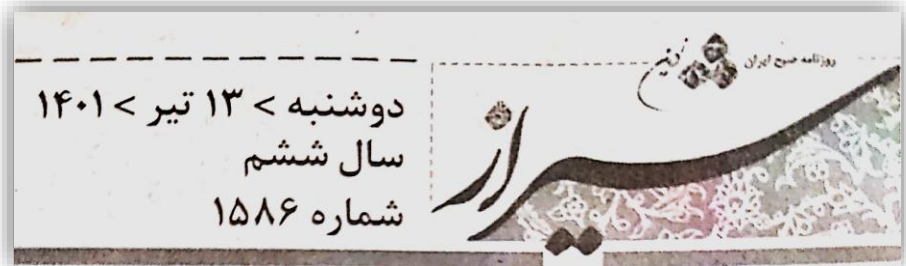 روزنامه صبح ایران
شیراز
نوین
دوشنبه > ۱۳ تیر > ۱۴۰۱
سال ششم
شماره ۱۵۸۶